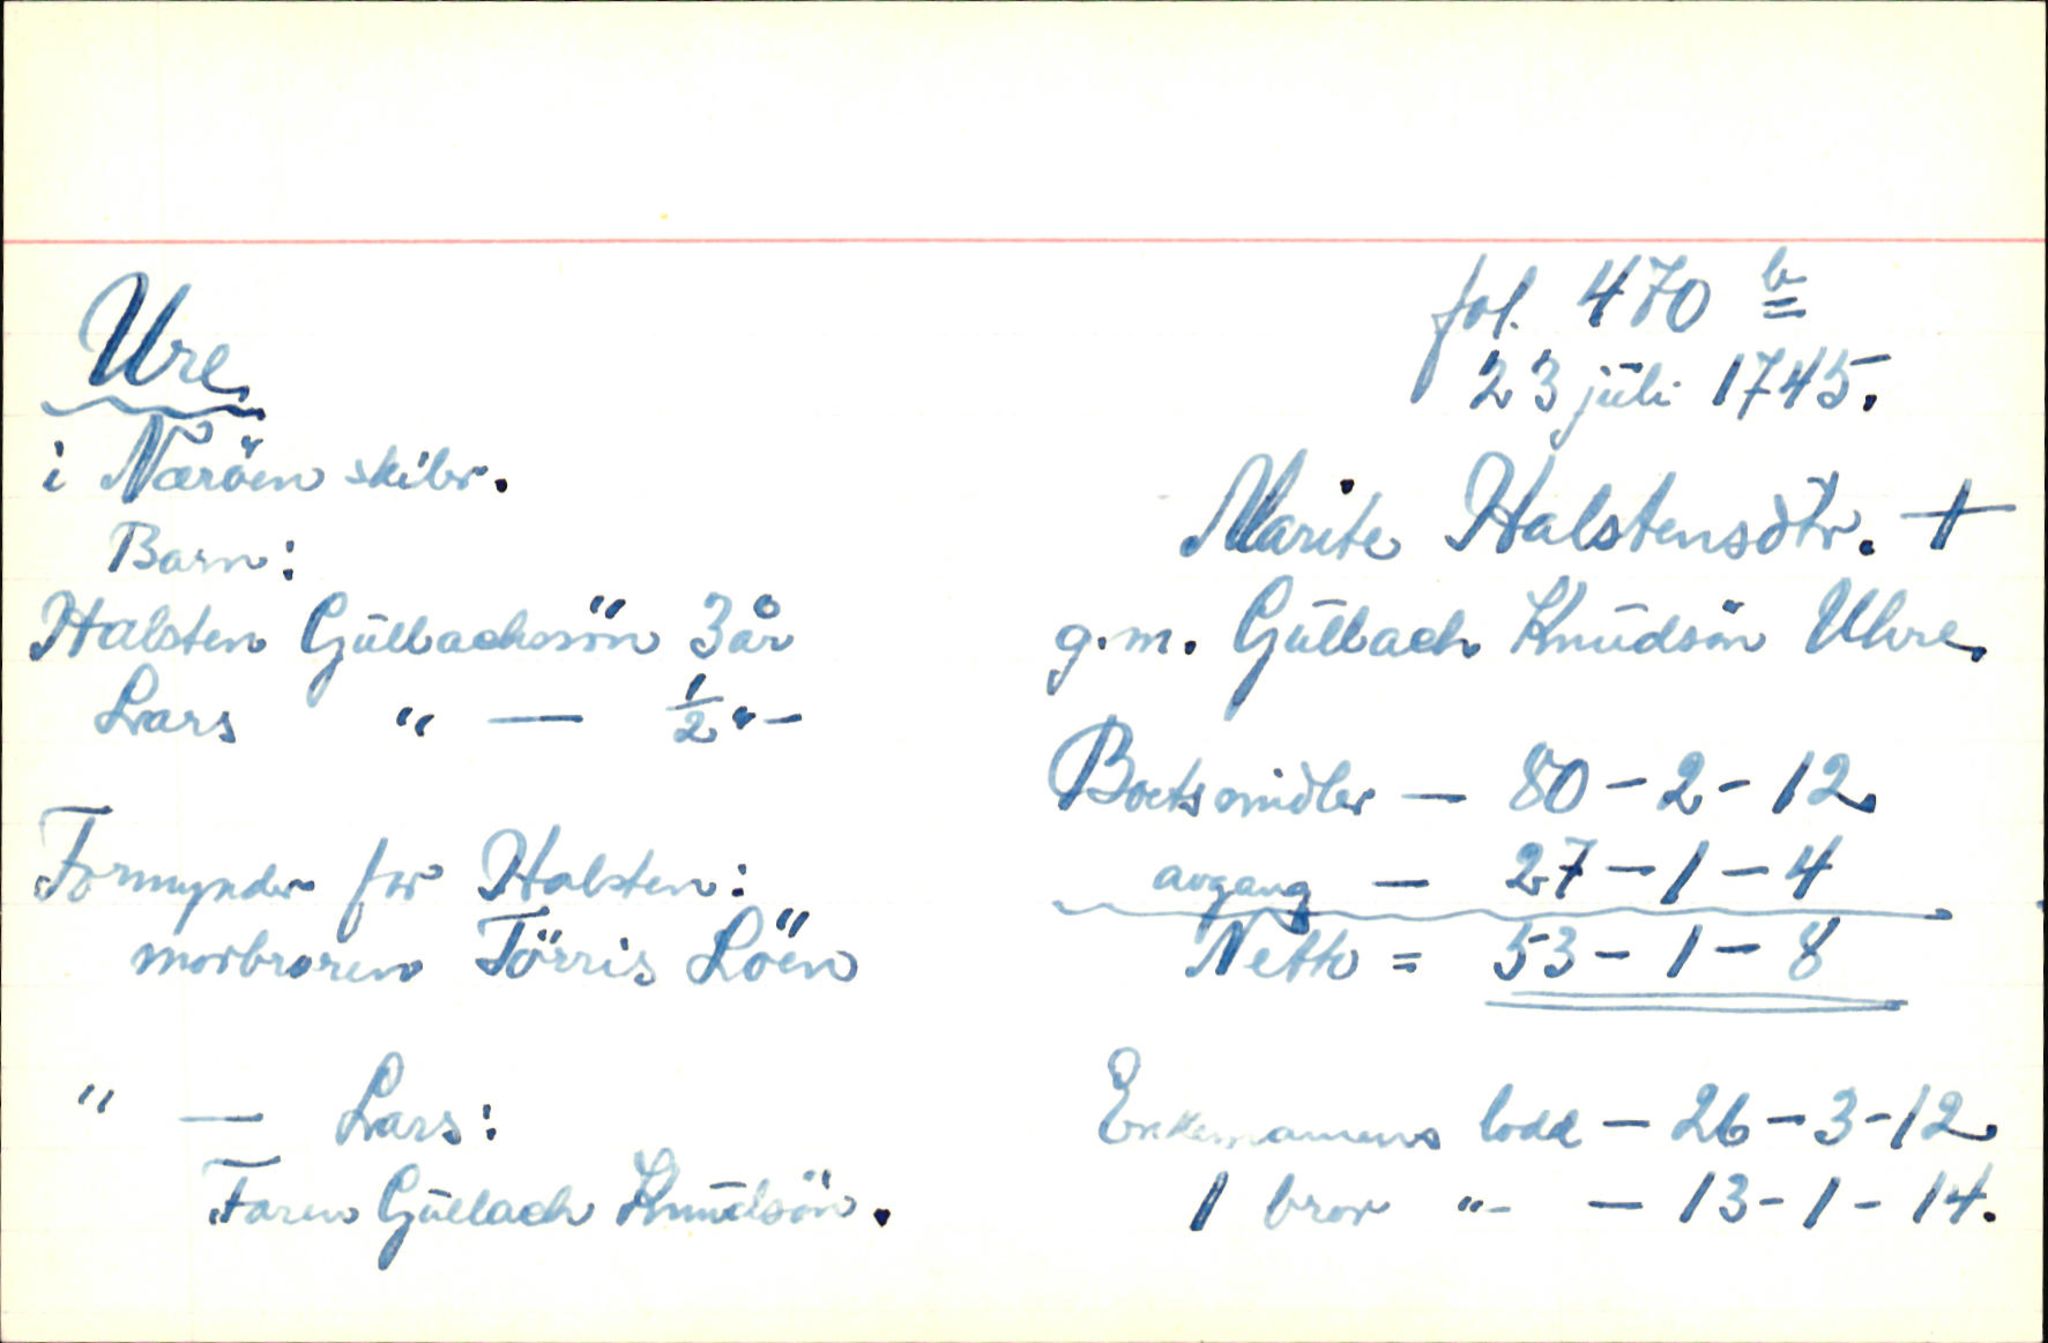 fol. 470 b
Ure
23 juli 1745.
i Næröen skibr.
Marite Halstensdtr. +
Barn:
Halsten Gullachssön 3 år
g.m. Gullach Knudsön Uhre.
Lars " — ½ "-
Boets midler — 80 - 2 - 12
Formynder for Halsten:
avgang — 27 - 1 - 4
morbroren Törris Löen
Netto = 53 - 1 - 8
" — Lars:
Enkemannens lodd - 26 - 3 - 12
Faren Gullach Knudsön.
1 bror "- — 13 - 1 - 14.